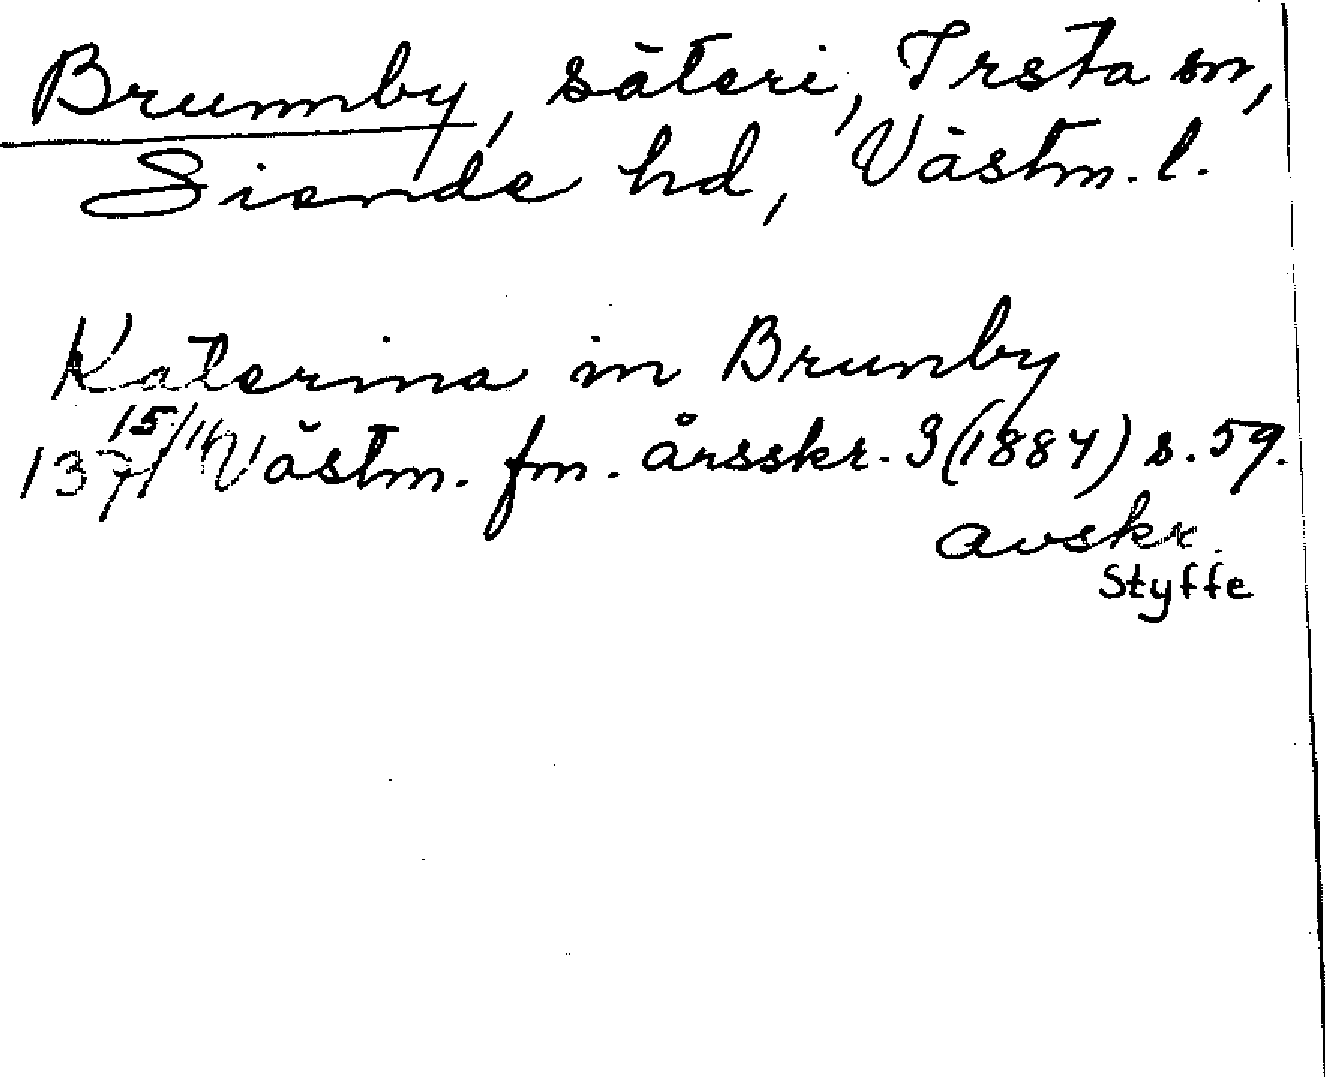 Brunnby, säteri, Irsta sn,
Siende hd, Västm. l.
Katerina in Brunby
137 15/11 Västm. fm. årsskr. 3 (1884) s. 59.
avskr.
Styffe